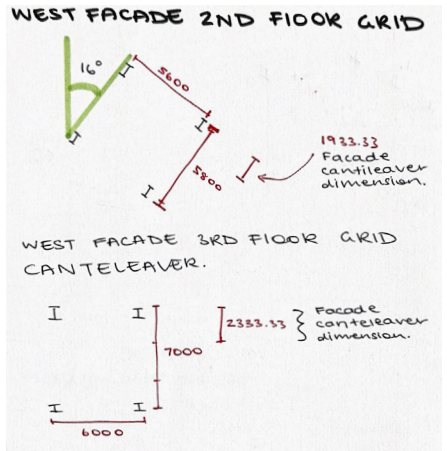 WEST FACADE 2ND FlOOR GRID
16°
5600
5800
1933.33
Facade
cantileaver
dimension.
WEST FACADE 3RD FlOOR GRID
CANTELEAVER.
7000
6000
2333.33
Facade
canteleaver
dimension.